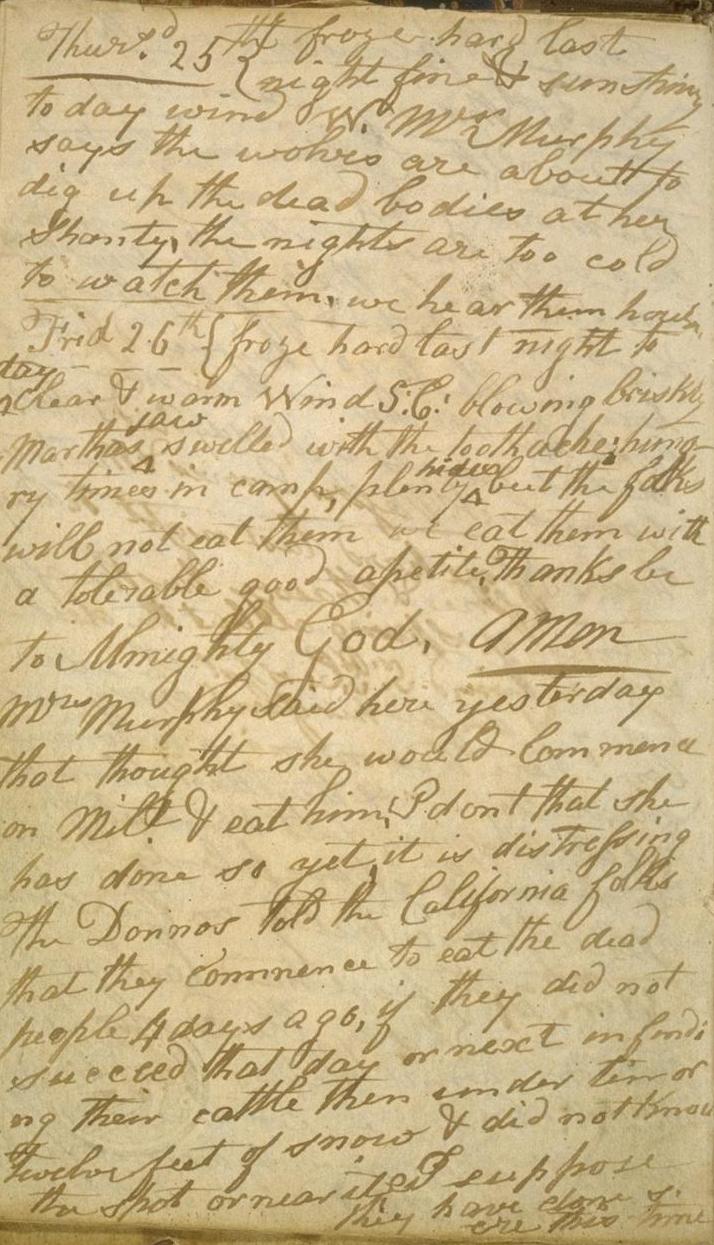 Thursd. 25th { froze hard last
night fine & sunshiny
today wind W. Mrs Murphy
says the wolves are about to
dig up the dead bodies at her
Shanty, the nights are too cold
to watch them, we hear them howl
Frid 26th { froze hard last night to
day
clear & warm Wind S.E. blowing briskly
Marthas jaw swelled with the toothache; hung-
ry times in camp, plenty hides but the folks
will not eat them we eat them with
a tolerable good apetite. Thanks be
to Almighty God. Amen
Mrs Murphy said here yesterday
that thought she would Commence
on Milt & eat him, I dont that she
has done so yet, it is distressing
The Donnos told the California folks
that they commence to eat the dead
people 4 days ago, if they did not
succeed that day or next in findi
ng their cattle then under ten or
twelve feet of snow & did not know
the spot or near it, I suppose
they have done so
ere this time